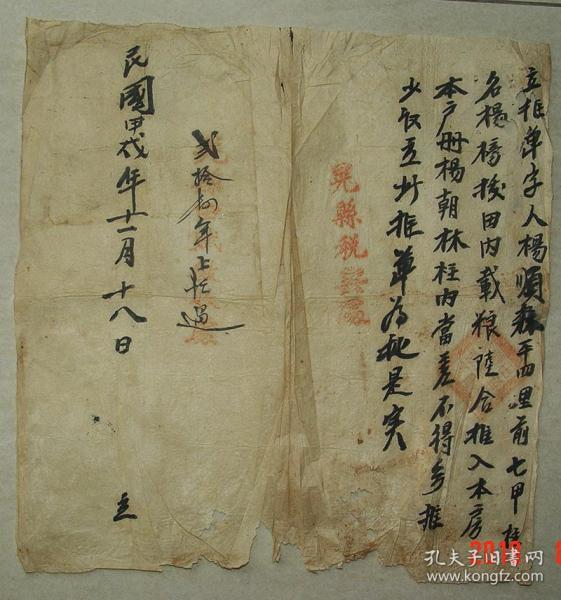 立推单字人楊順林平四里前七甲柱
名楊橋授田内載粮陸合推入本房
本户册楊朝林柱内當差不得多推
少收立此推单为批是实
晃縣稅
弍拾年上忙過
民國甲戌年十一月十八日 立
孔夫子旧书网
www.kongfz.com